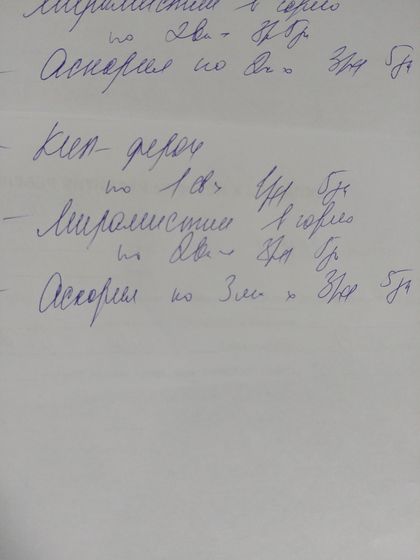 Мирамистин в горло
по 2вп × 3рд 5дн
- Аскорил по 2мл × 3рд 5дн
- Кип-ферон
по 1 св × 1рд 5дн
- Мирамистин в горло
по 2вп × 3рд 5дн
- Аскорил по 3мл × 3рд 5дн